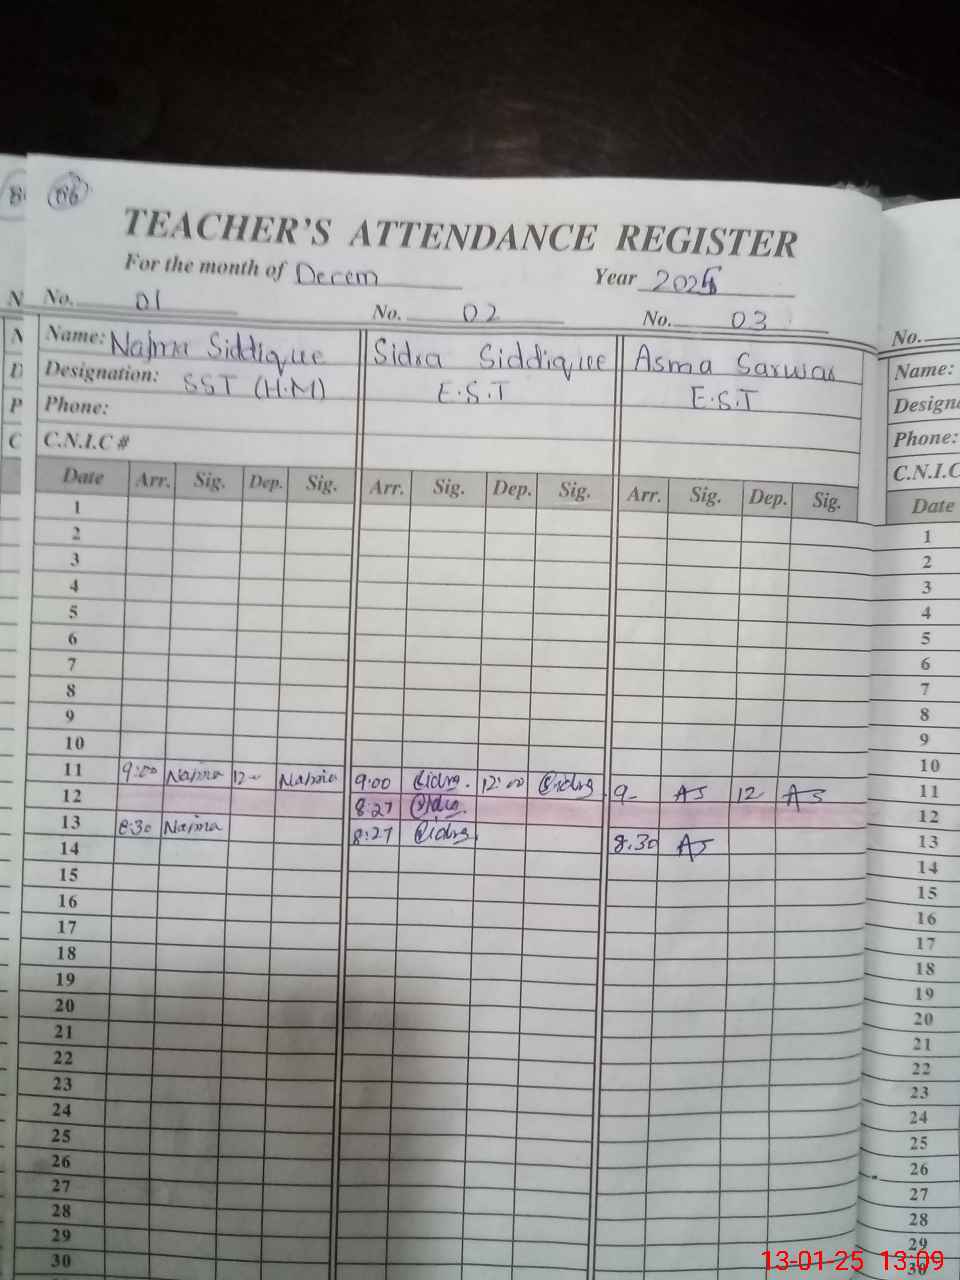 86
TEACHER'S ATTENDANCE REGISTER
For the month of Decem Year 2025
No. 01 No. 02 No. 03 No.
Name: Najma Siddiquee Sidra Siddiquee Asma Sarwar Name:
Designation: SST (H.M) E.S.T E.S.T
Phone: Phone:
C.N.I.C # C.N.I.C
Date Arr. Sig. Dep. Sig. Arr. Sig. Dep. Sig. Arr. Sig. Dep. Sig. Date
1 1
2 2
3 3
4 4
5 5
6 6
7 7
8 8
9 9
10 10
11 9:00 Najma 12- Najma 9:00 Sidra 12:00 Sidra 9- AS 12 AS 11
12 8:27 Sidra 12
13 8:30 Najma 8:27 Sidra 8.30 AS 13
14 14
15 15
16 16
17 17
18 18
19 19
20 20
21 21
22 22
23 23
24 24
25 25
26 26
27 27
28 28
29 29
30 30
13-01-25 13:09